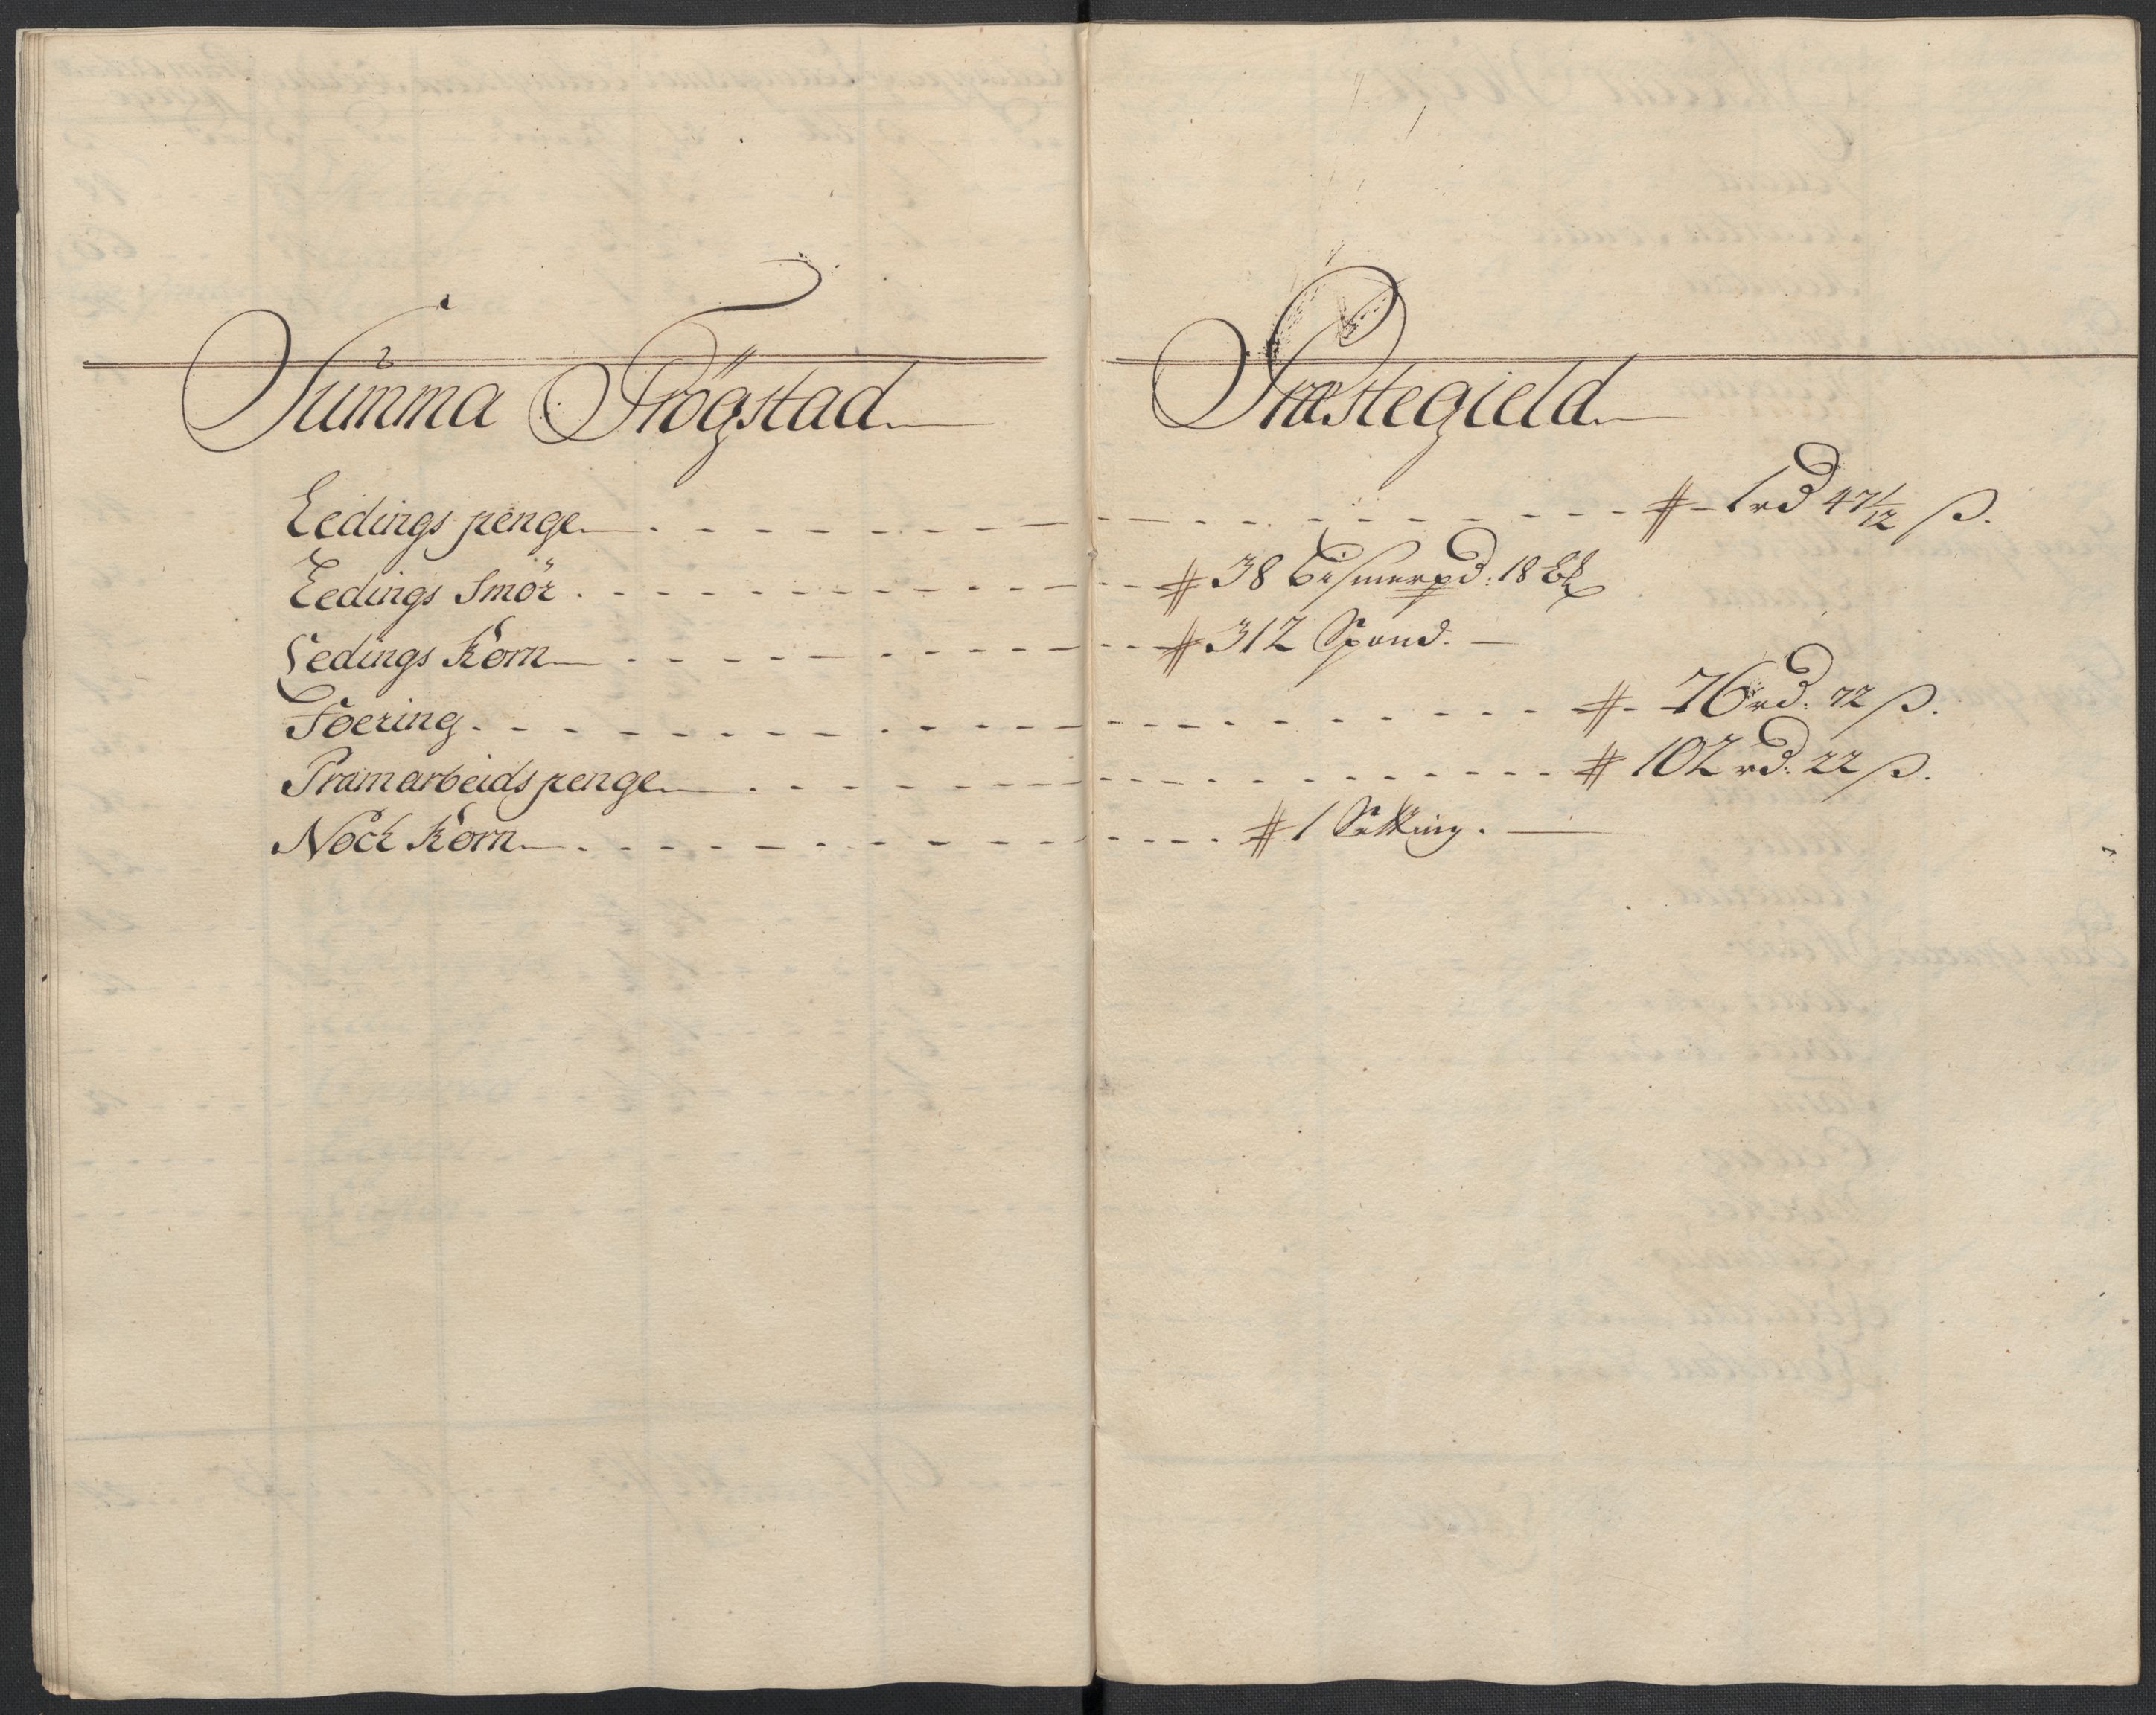 Summa Trögstad Præstegield
Ledings penge - - - # - 1 rd 47 1/12 ß.
Ledings Smör - - - # 38 bismerpd: 18 ℔
Ledings Korn - - - # 312 Spand.
Foering - - - # - 76 rd: 72 ß.
Pramarbeids penge - - - # 102 rd: 22 ß.
Noch Korn - - - # 1 Setting.